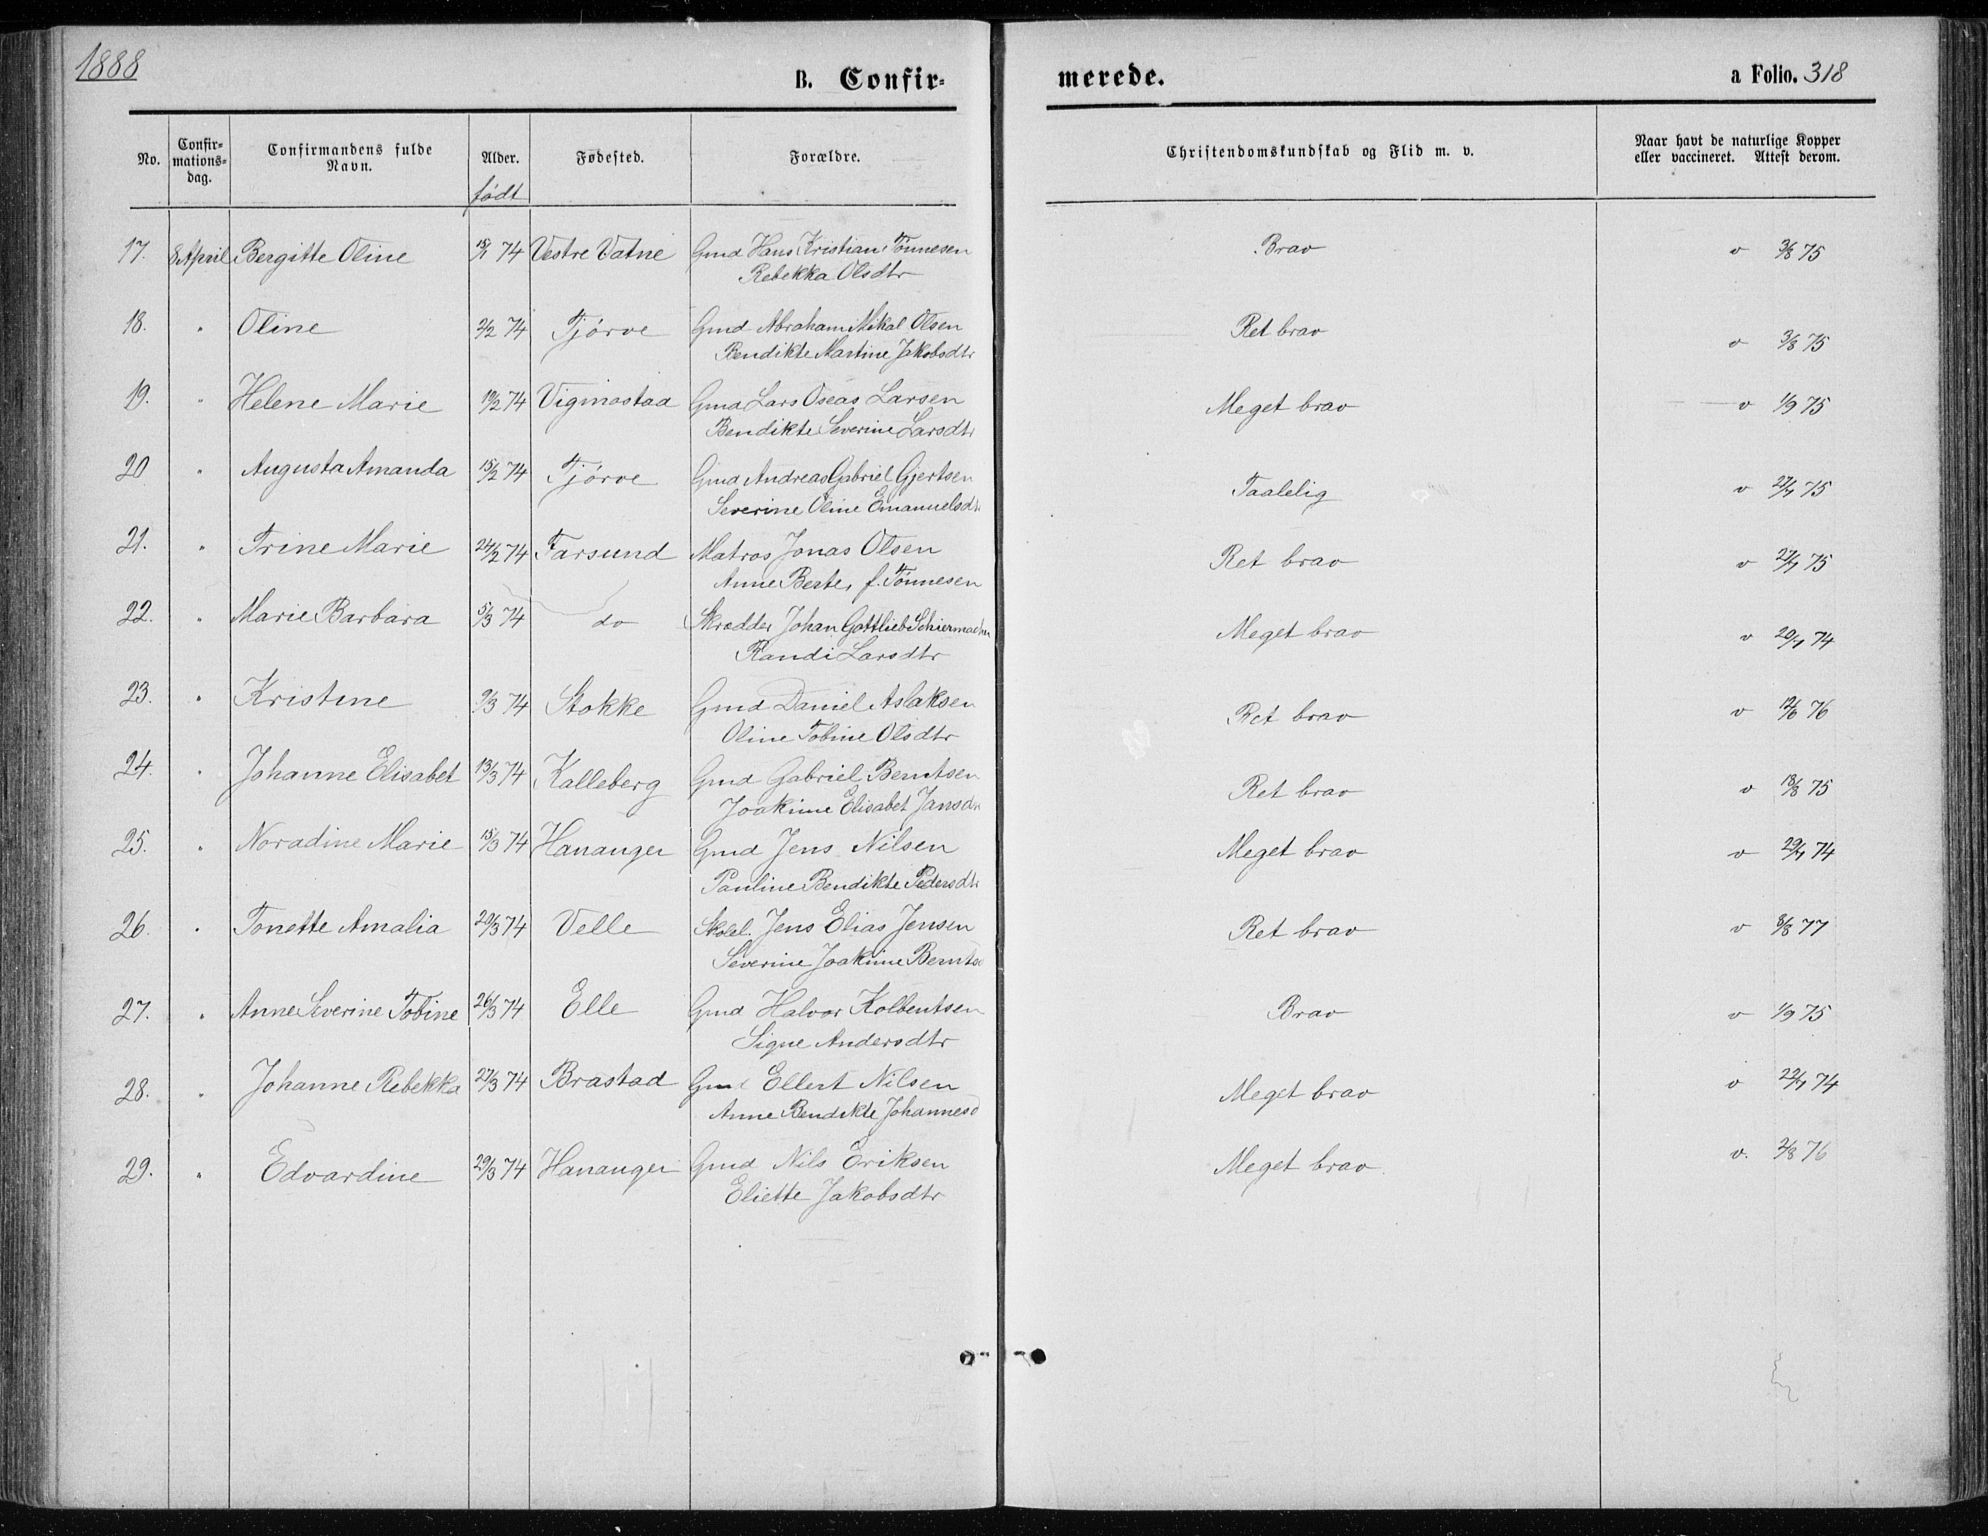 1888
B. Confir- merede. a Folio. 318
No. Confir- mations- dag. Confirmandens fulde Navn. Alder. født Fødested. Forældre. Christendomskundskab og Flid m. v. Naar havt de naturlige Kopper eller vaccineret. Attest derom.
17. 8 April Bergitte Oline 74 Vestre Vatne Gmd Hans Kristian Tønnesen Brav v 3/8 75
Rebekka Olsdtr
18. " Oline 2/2 74 Tjørve Gmd Abraham Mikal Olsen Ret brav v 3/8 75
Bendikte Martine Jakobsdtr
19. " Helene Marie 19/2 74 Vigmostad Gmd Lars Oseas Larsen Meget brav v 1/9 75
Bendikte Severine Larsdtr
20 " Augusta Amanda 15/2 74 Tjørve Gmd Andreas Gabriel Gjertsen Taalelig v 27/7 75
Severine Oline Emanuelsdtr
21. " Trine Marie 24/2 74 Farsund Matros Jonas Olsen Ret brav v 27/7 75
Anne Berte, f. Tønnesen
22. " Marie Barbara 5/3 74 do Skrædder Johan Gottlieb Meget brav v 20/7 74
Randi Larsdtr
23. " Kristine 9/3 74 Stokke Gmd Daniel Aslaksen Ret brav v 12/6 76
Oline Tobine Olsdtr
24. " Johanne Elisabet 13/3 74 Kalleberg Gmd Gabriel Berntsen Ret brav v 18/8 75
Joakime Elisabet Jansdtr
25. " Noradine Marie 15/3 74 Hananger Gmd Jens Nilsen Meget brav v 29/7 74
Pauline Bendikte Pedersdtr
26. " Tonette Amalia 20/3 74 Velle Skolel. Jens Elias Jensen Ret brav v 8/8 77
Severine Joakime Bernts
27. " Anne Severine Tobine 26/3 74 Elle Gmd Halvor Kolbentsen Brav v 1/9 75
Signe Andersdtr
28. " Johanne Rebekka 27/3 74 Brastad Gmd Ellert Nilsen Meget brav v 22/7 74
Anne Bendikte Johannesd
29. " Edvardine 29/3 74 Hananger Gmd Nils Eriksen Meget brav v. 2/8 76
Eliette Jakobsdtr